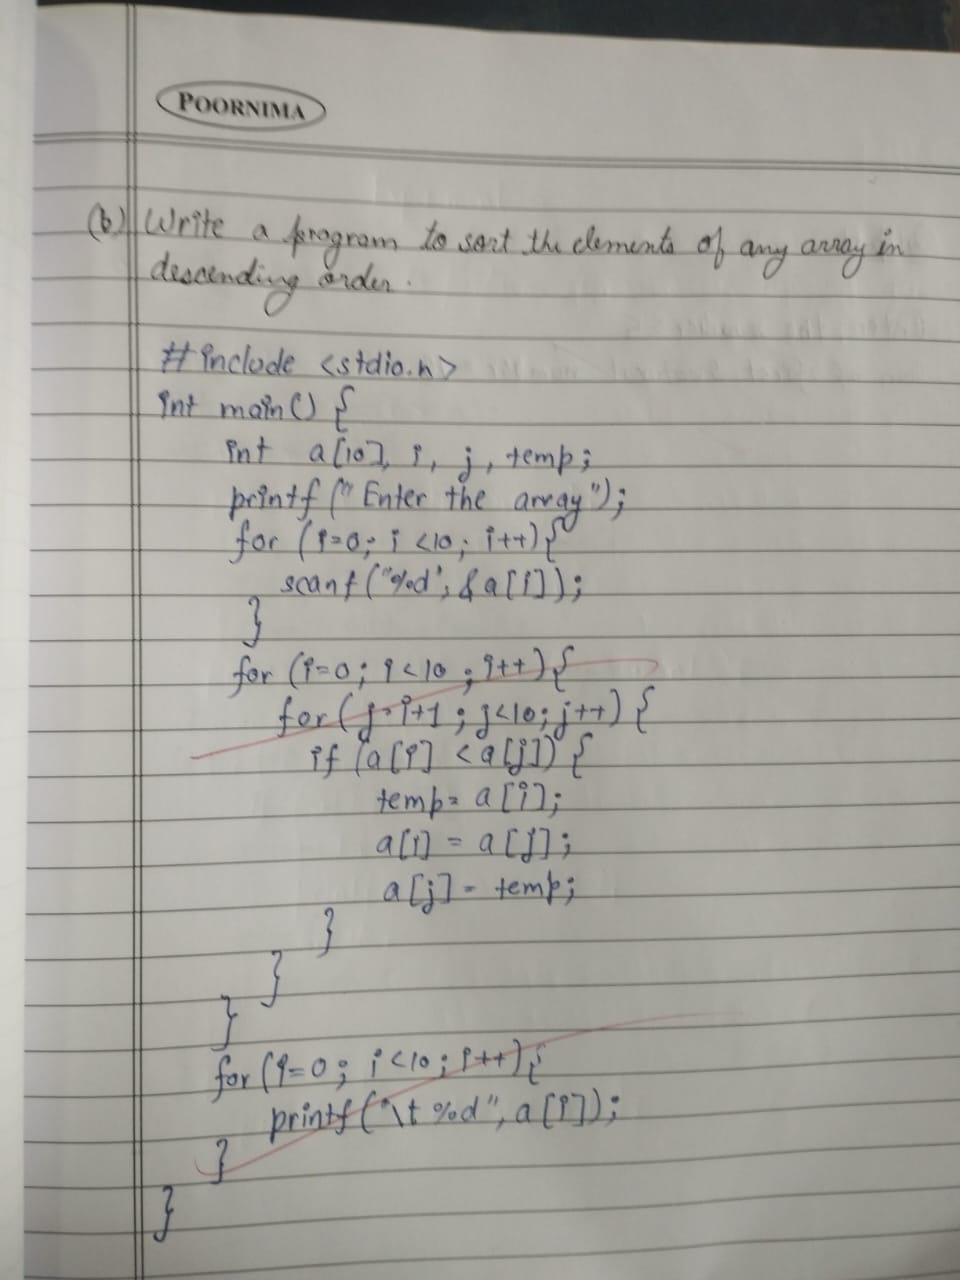 POORNIMA
(b) Write a program to sort the elements of any array in
descending order.
#include <stdio.h>
int main() {
int a[10], i, j, temp;
printf ("Enter the array");
for (i=0; i<10; i++){
scanf ("%d", &a[i]);
}
for (i=0; i<10; i++){
for (j=i+1; j<10; j++) {
if (a[i] < a[j]) {
temp = a[i];
a[i] = a[j];
a[j] = temp;
}
}
}
for (i=0; i<10; i++){
printf ("\t %d", a[i]);
}
}